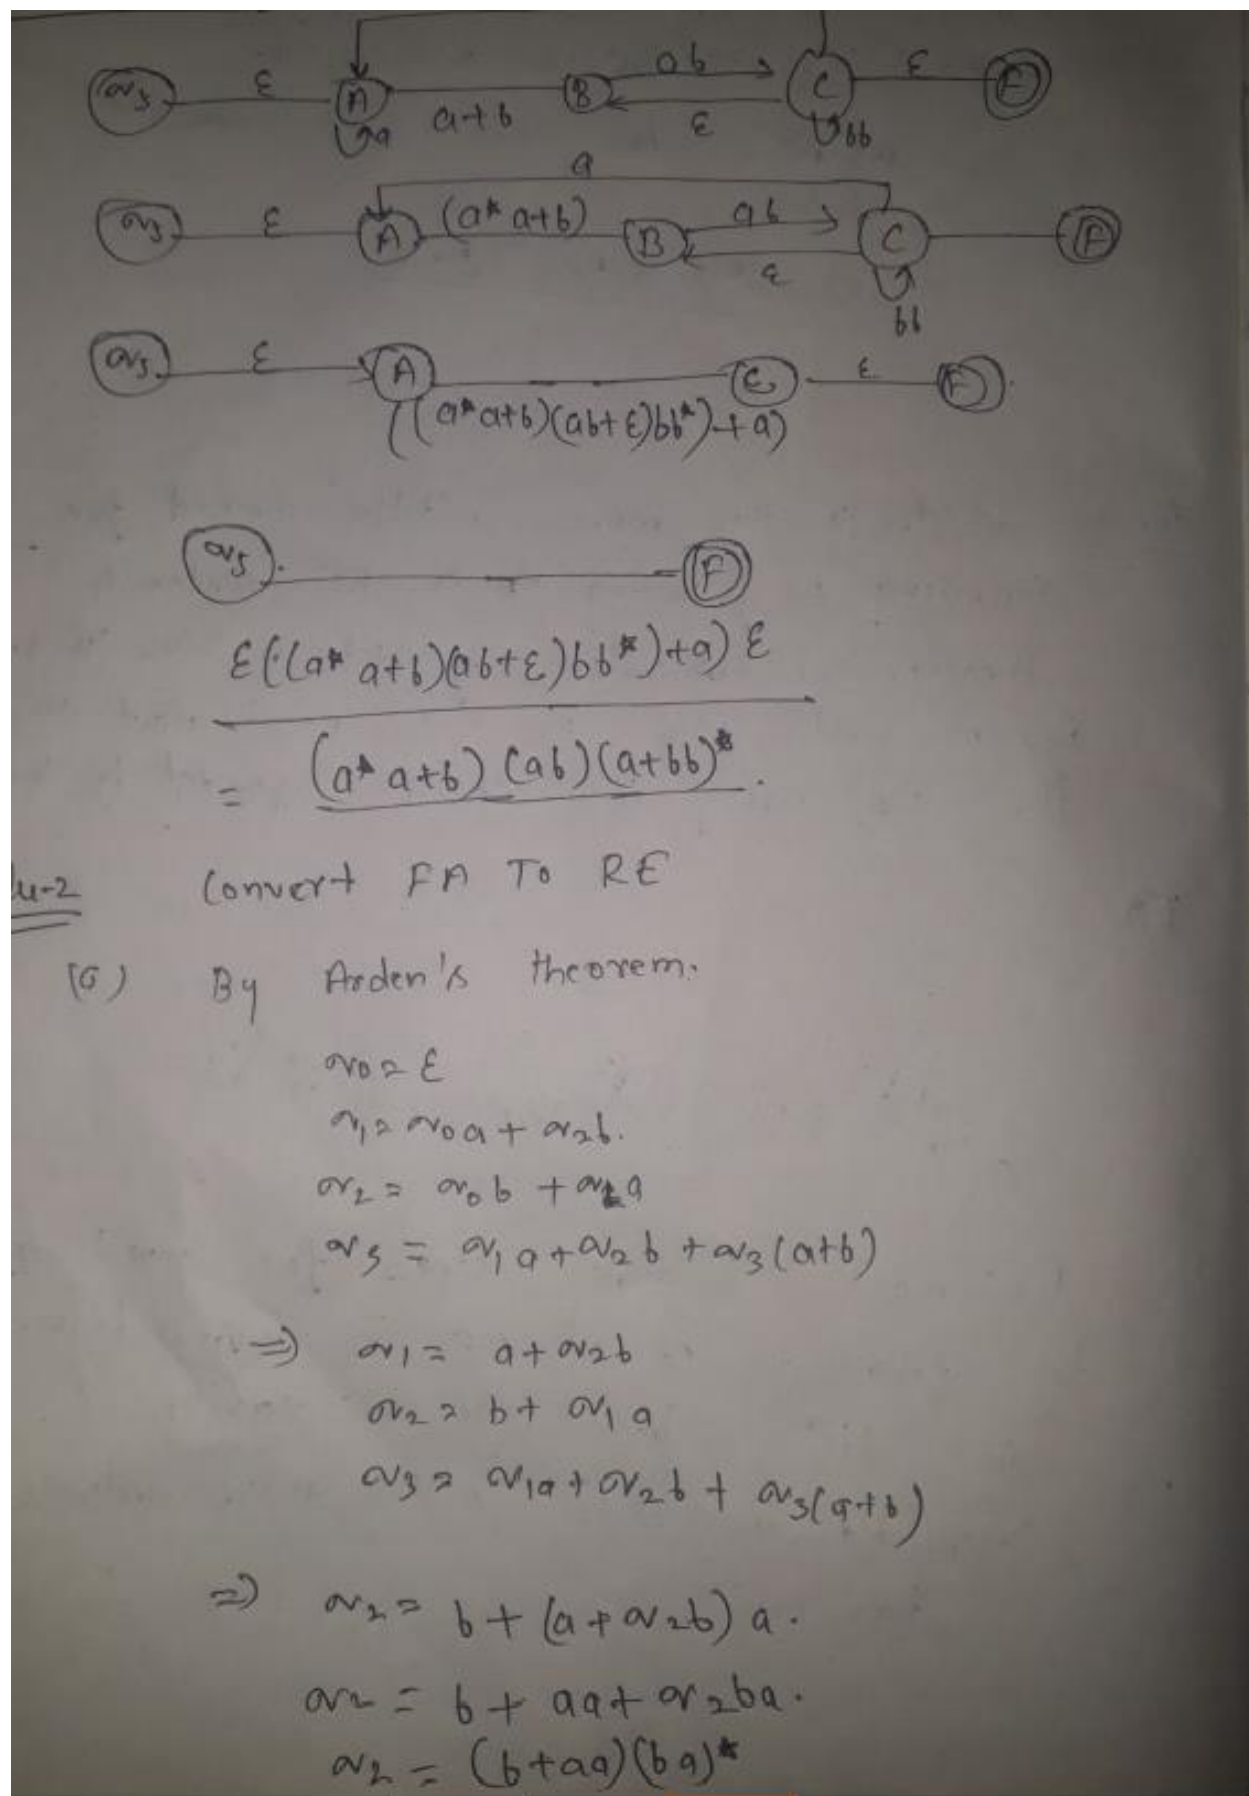 q5 ε A a+b B ab C ε F
a ε bb
a
q5 ε A (a* a+b) B ab C F
ε
bb
q5 ε A C ε F
((a* a+b)(ab+ε)bb*)+a)
q5 F
ε((a* a+b)(ab+ε)bb*)+a) ε
= (a* a+b) (ab)(a+bb)*.
u-2 Convert FA To RE
(6) By Arden's theorem.
q0 = ε
q1 = q0a + q2b.
q2 = q0b + q1a
q3 = q1a + q2b + q3(a+b)
⇒ q1 = a + q2b
q2 = b + q1a
q3 = q1a + q2b + q3(a+b)
⇒ q2 = b + (a + q2b) a.
q2 = b + aa + q2ba.
q2 = (b+aa)(ba)*